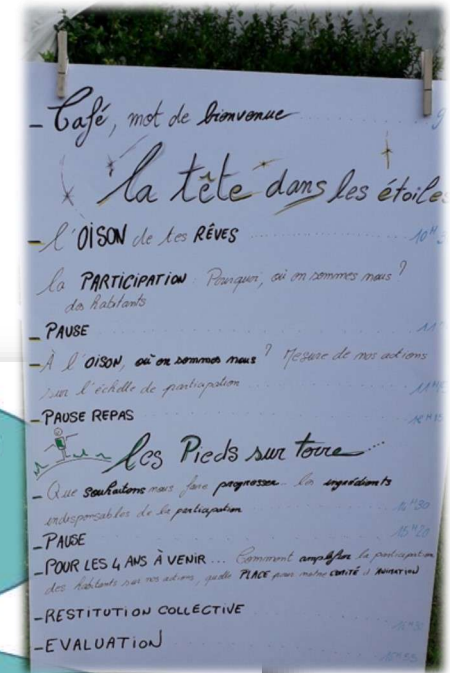 - Café, mot de bienvenue
la tête dans les étoiles
- l'OISON de tes RÊVES 10H
la PARTICIPATION Pourquoi, où en sommes nous ?
des habitants
- PAUSE
- À l'OISON, où en sommes nous ? Mesure de nos actions
sur l'échelle de participation
- PAUSE REPAS
les Pieds sur terre...
- Que souhaitons nous faire progresser les ingrédients
indispensables de la participation
- PAUSE 15H20
- POUR LES 4 ANS À VENIR... Comment amplifier la participation
des habitants sur nos actions, quelle PLACE pour notre COMITÉ d'ANIMATION
- RESTITUTION COLLECTIVE
- EVALUATION